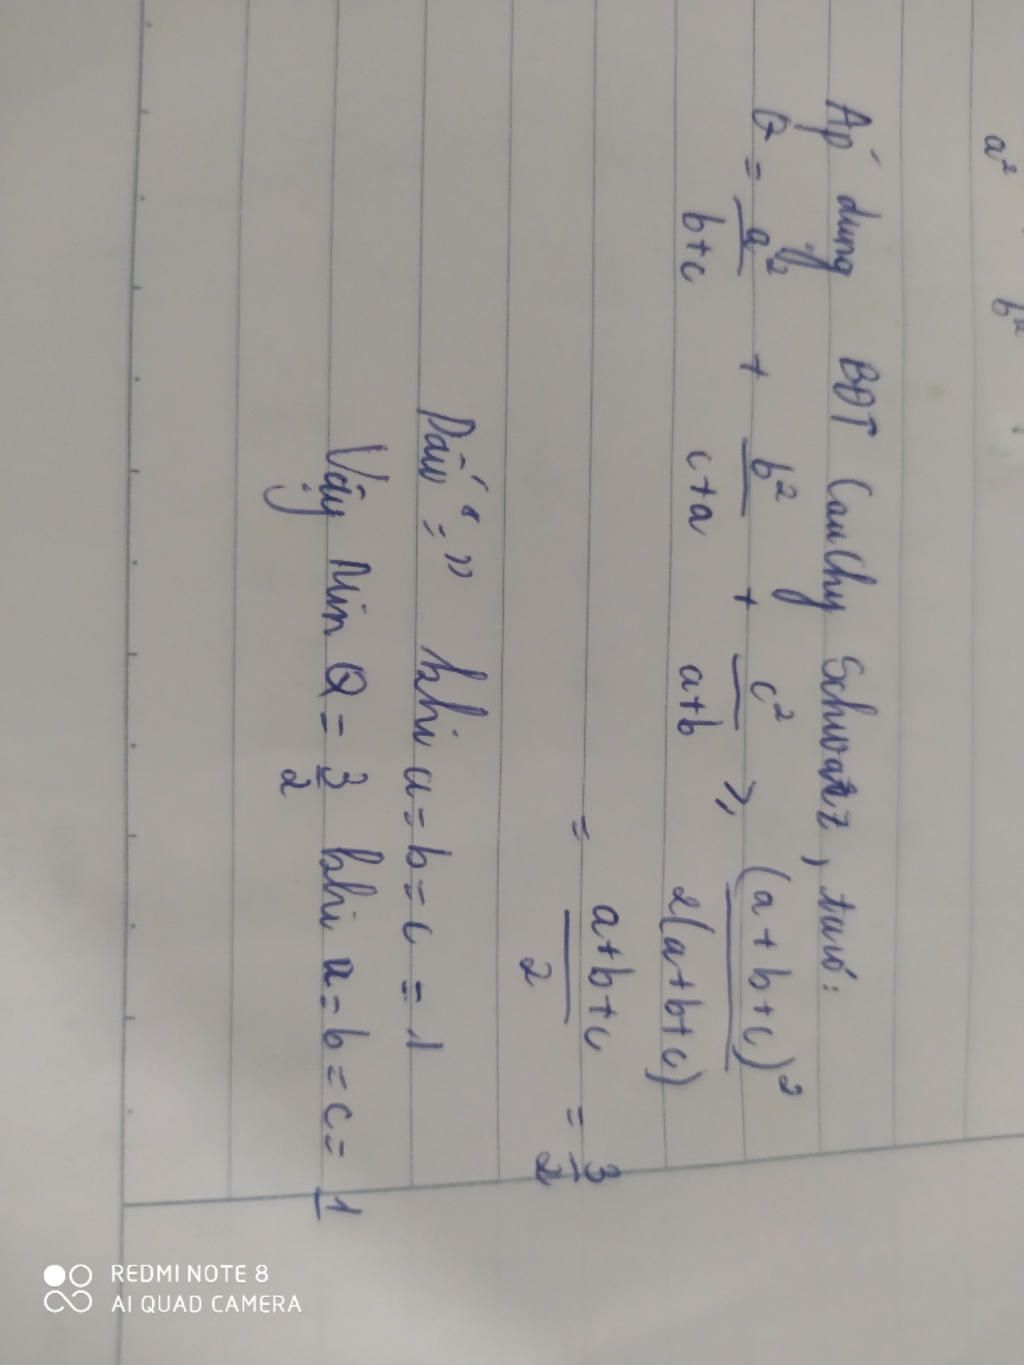 a² b²
Áp dụng BĐT Cauchy Schwarz, ta có:
Q = a²/(b+c) + b²/(c+a) + c²/(a+b) ≥ (a+b+c)²/2(a+b+c)
= (a+b+c)/2 = 3/2
Dấu "=" khi a=b=c=1
Vậy Min Q = 3/2 khi a=b=c=1
REDMI NOTE 8
AI QUAD CAMERA